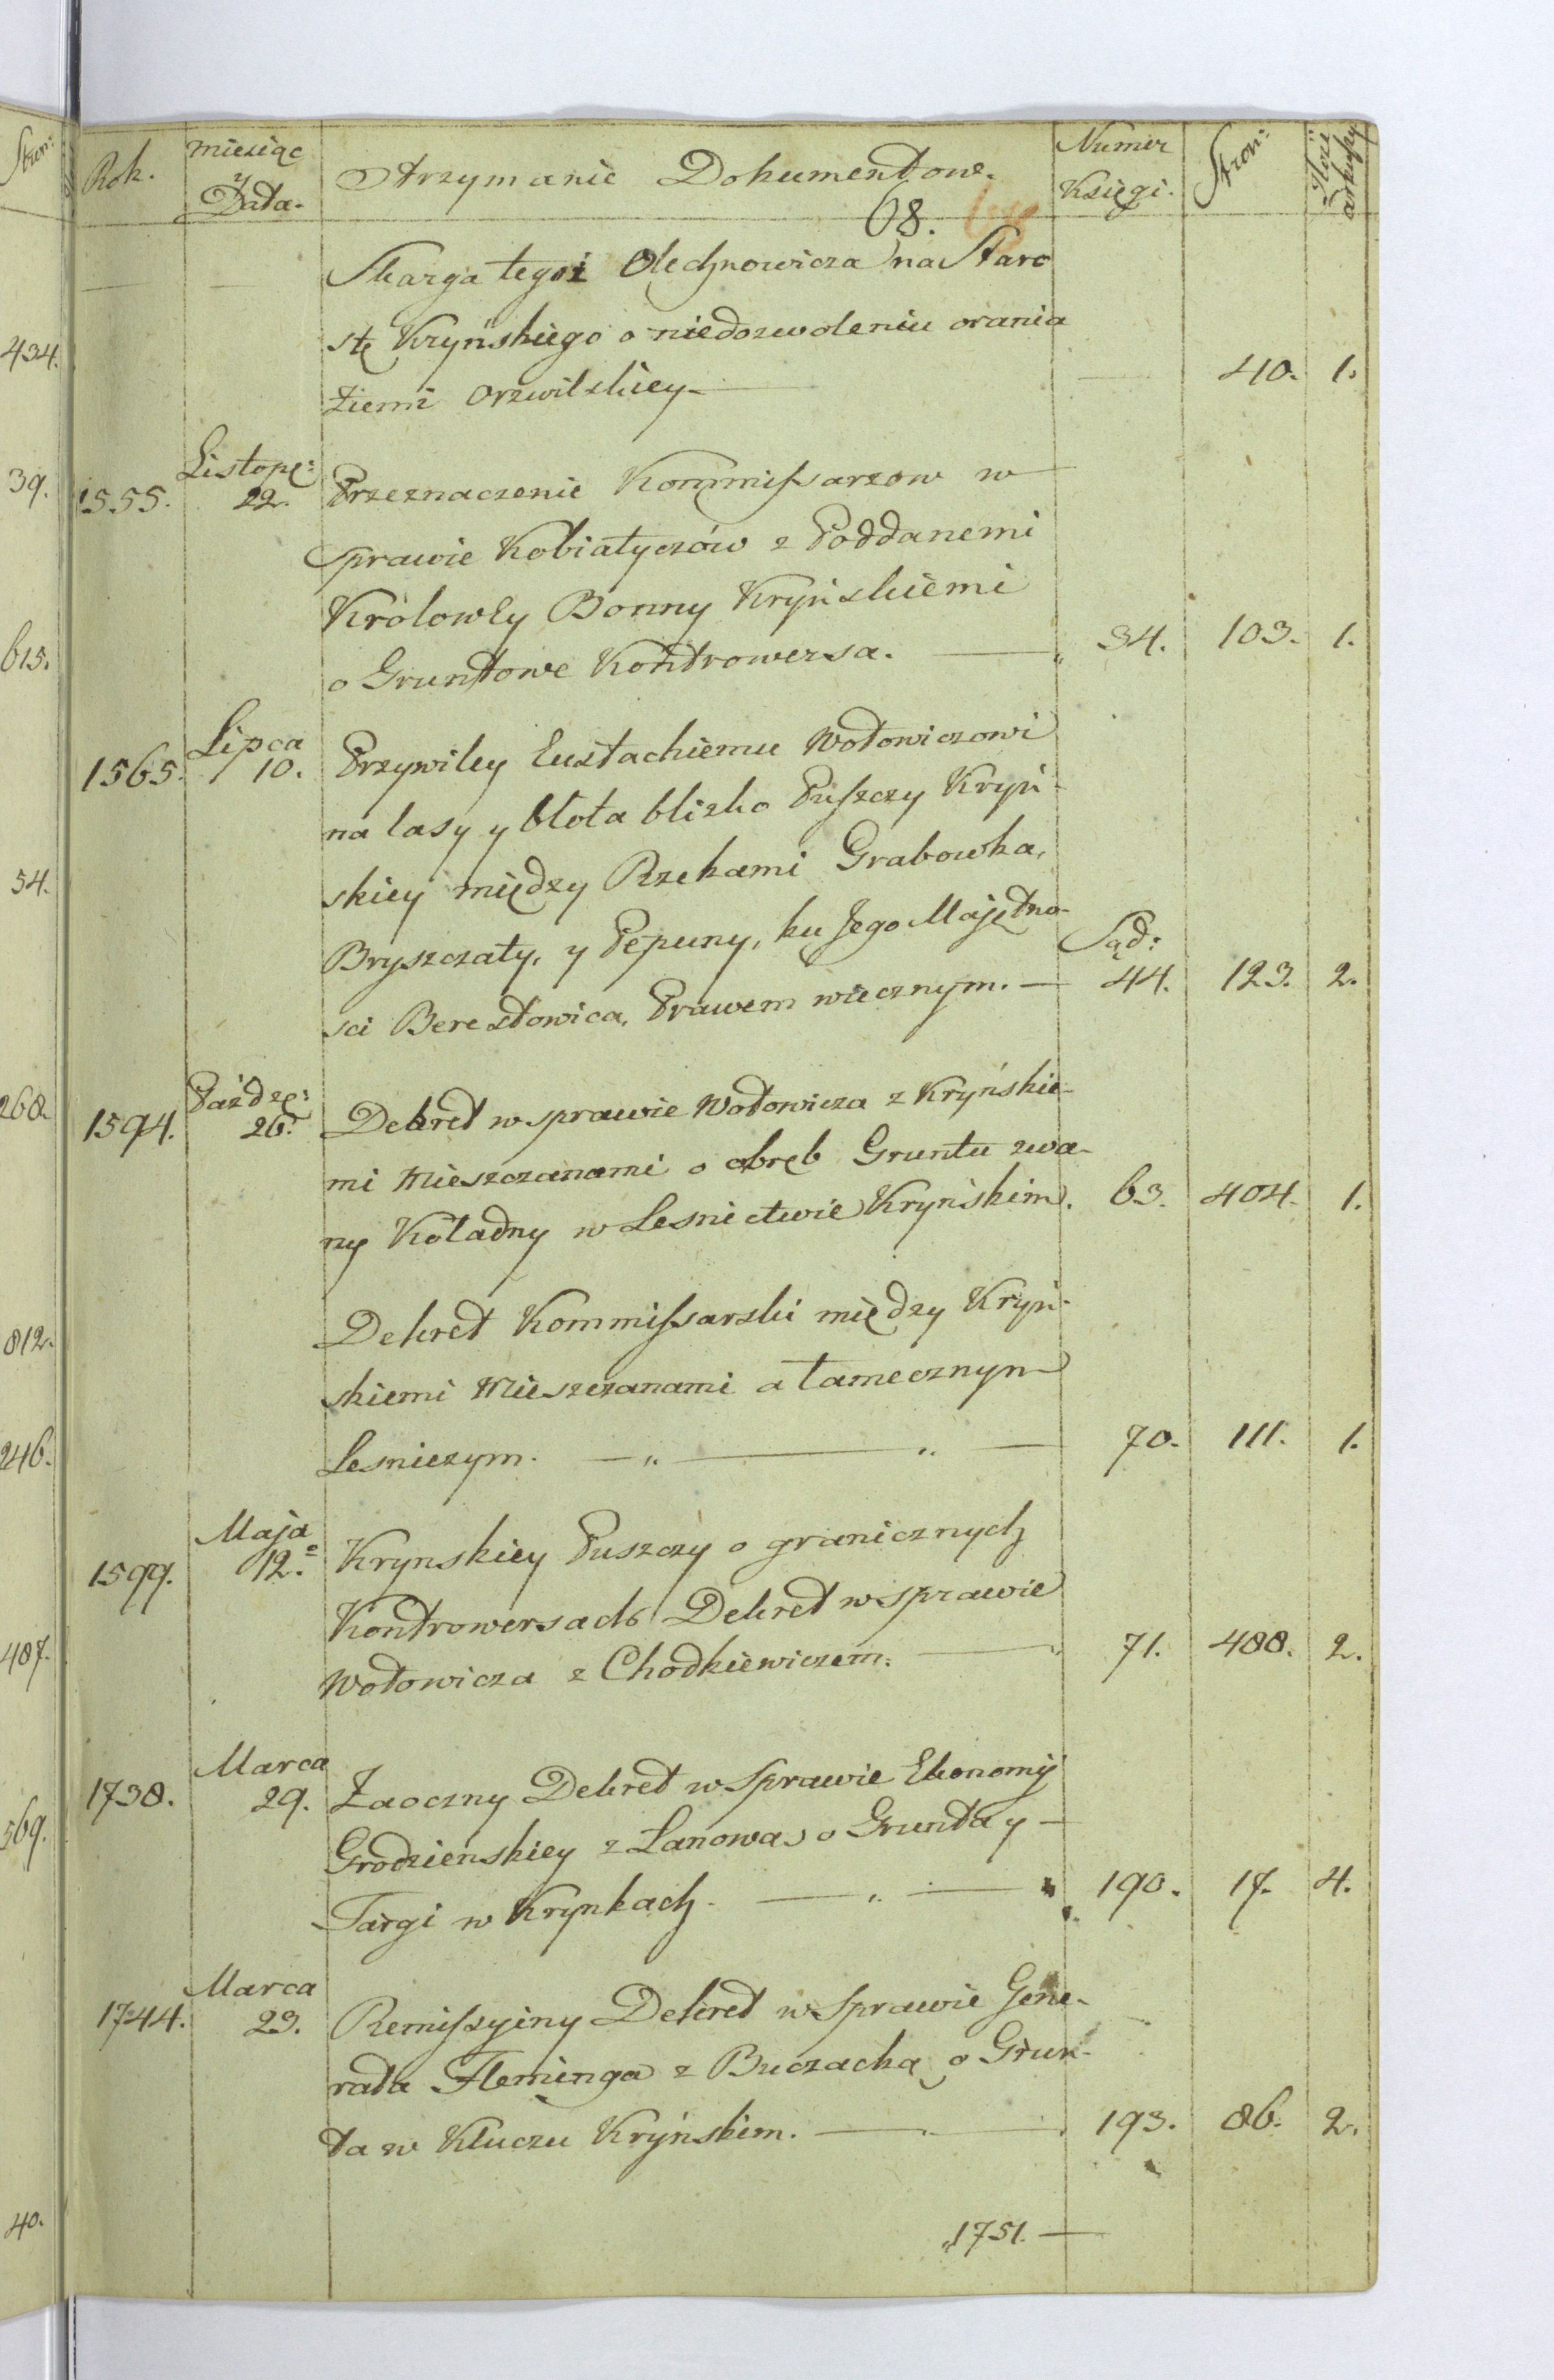 Stron:
Rok.
miesiąc
y
Data.
Otrzymanie Dokumentow.
Numer
Księgi.
Stron:
Ilość
arkuszy
68.
Skarga tegoż Olechnowicza na Staro
stę Kryńskiego o niedozwoleniu orania
ziemi Orzwilskiey — — 40. 1.
1555. Listopa: 22. Przeznaczenie Kommissarzow w
Sprawie Kobiatyczów z Poddanemi
Królowey Bonny Kryńskiemi
o Gruntowe Kontrowersa. — 34. 103. 1.
1565. Lipca 10. Przywiley Eustachiemu Wołowiczowi
na lasy y błota blizko Puszczy Kryń-
skiey między Rzekami Grabowka,
Bryszczały, y Pepuny, ku Jego Majętno-
sci Berestowica, Prawem wiecznym. — Sąd: 44. 123. 2.
1594. Paździe: 26. Dekret w sprawie Wołowicza z Kryńskie-
mi Mieszczanami o obręb Gruntu zwa-
ny Koładny w Lesnictwie Kryńskim. 63. 404. 1.
Dekret Kommissarski między Kryń-
skiemi Mieszczanami a tamecznym
Lesniczym. — „ — „ — 70. 111. 1.
1599. Maja 12. Krynskiey Puszczy o granicznych
Kontrowersach Dekret w sprawie
Wołowicza z Chodkiewiczem. — 71. 488. 2.
1738. Marca 29. Zaoczny Dekret w Sprawie Ekonomij
Grodzienskiey z Lanową o Grunta y —
Targi w Krynkach. — „ — 190. 17. 4.
1744. Marca 23. Remissyiny Dekret w Sprawie Gene-
rała Fleminga z Buczacką o Grun-
ta w Kluczu Kryńskim. — 193. 86. 2.
„1751. —
434.
39.
615.
54.
268
812.
246.
487.
569.
40.